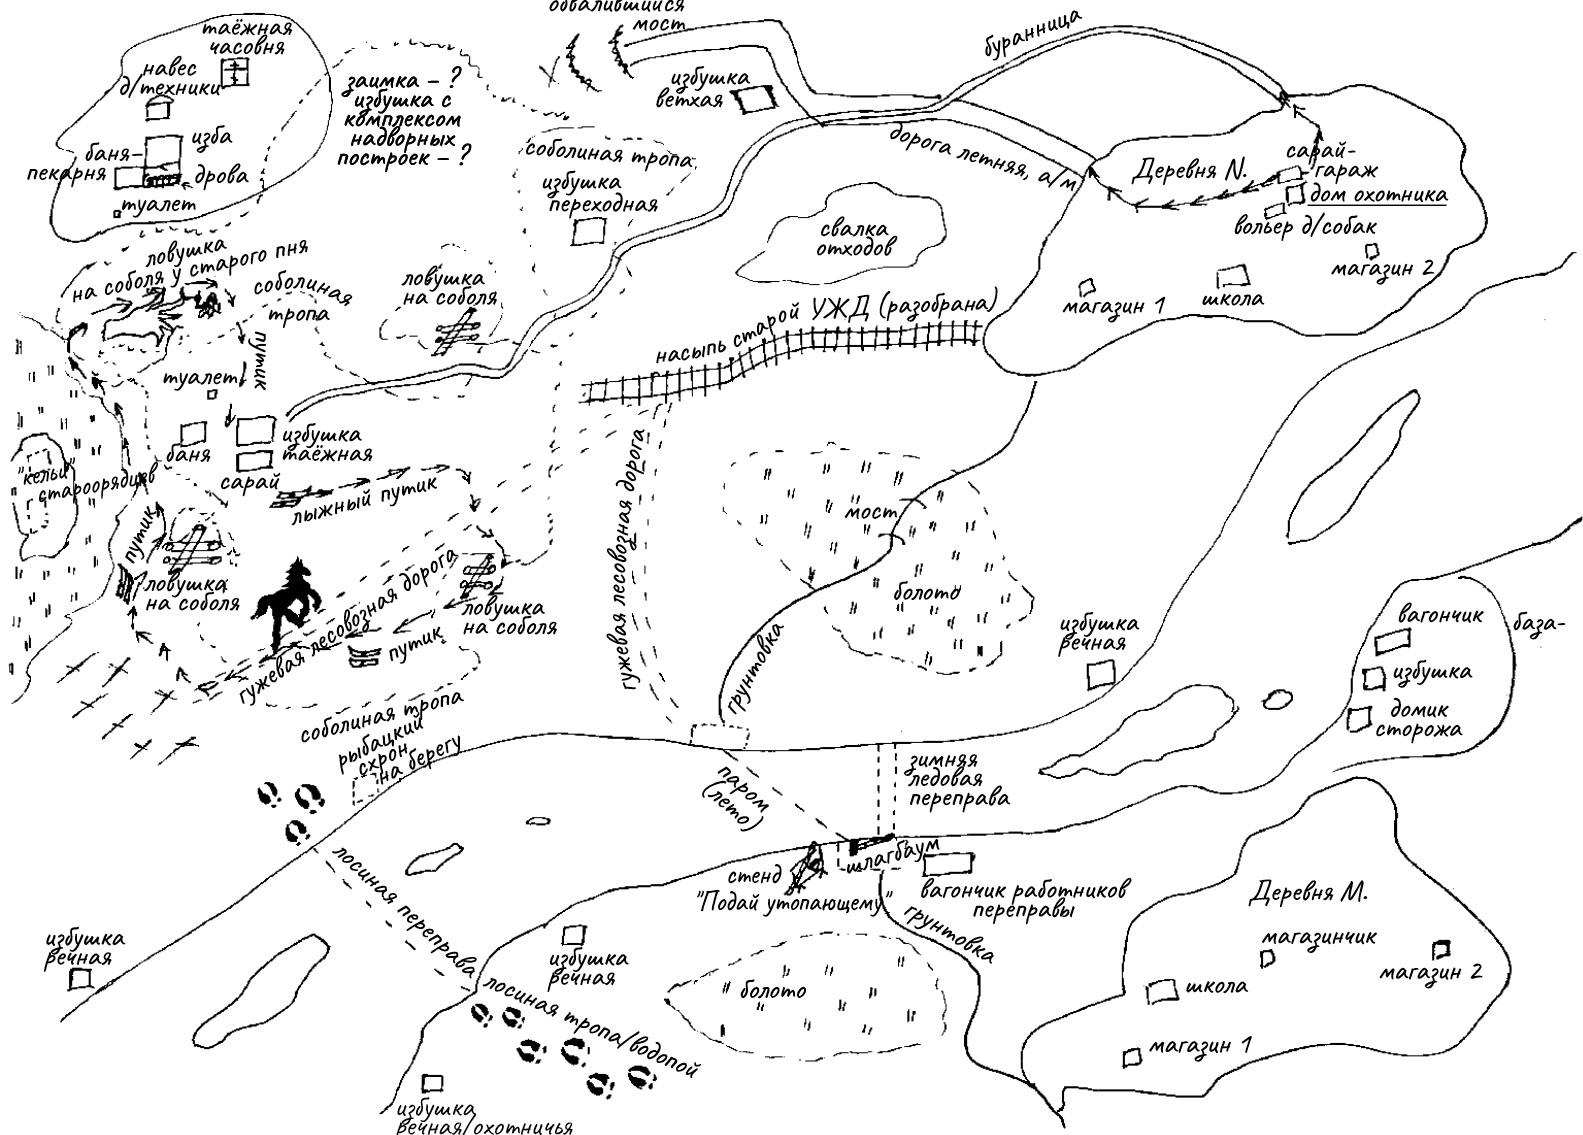 обвалившийся
мост
таёжная
часовня
навес
д/техники
изба
баня-
пекарня
дрова
туалет
заимка – ?
избушка с
комплексом
надворных
построек – ?
избушка
ветхая
буранница
соболиная тропа
избушка
переходная
дорога летняя, а/м
Деревня N.
сарай-
гараж
дом охотника
вольер д/собак
магазин 2
магазин 1
школа
свалка
отходов
ловушка
на соболя у старого пня
соболиная
тропа
ловушка
на соболя
насыпь старой УЖД (разобрана)
путик
туалет
баня
избушка
таёжная
сарай
лыжный путик
"кельи"
старообрядцев
путик
ловушка
на соболя
гужевая лесовозная дорога
ловушка
на соболя
путик
гужевая лесовозная дорога
мост
болото
грунтовка
избушка
речная
вагончик
база-
избушка
домик
сторожа
соболиная тропа
рыбацкий
схрон
на берегу
паром
(лето)
зимняя
ледовая
переправа
шлагбаум
стенд
"Подай утопающему"
вагончик работников
переправы
грунтовка
лосиная переправа
избушка
речная
избушка
речная
лосиная тропа/водопой
болото
Деревня М.
магазинчик
магазин 2
школа
магазин 1
избушка
речная/охотничья